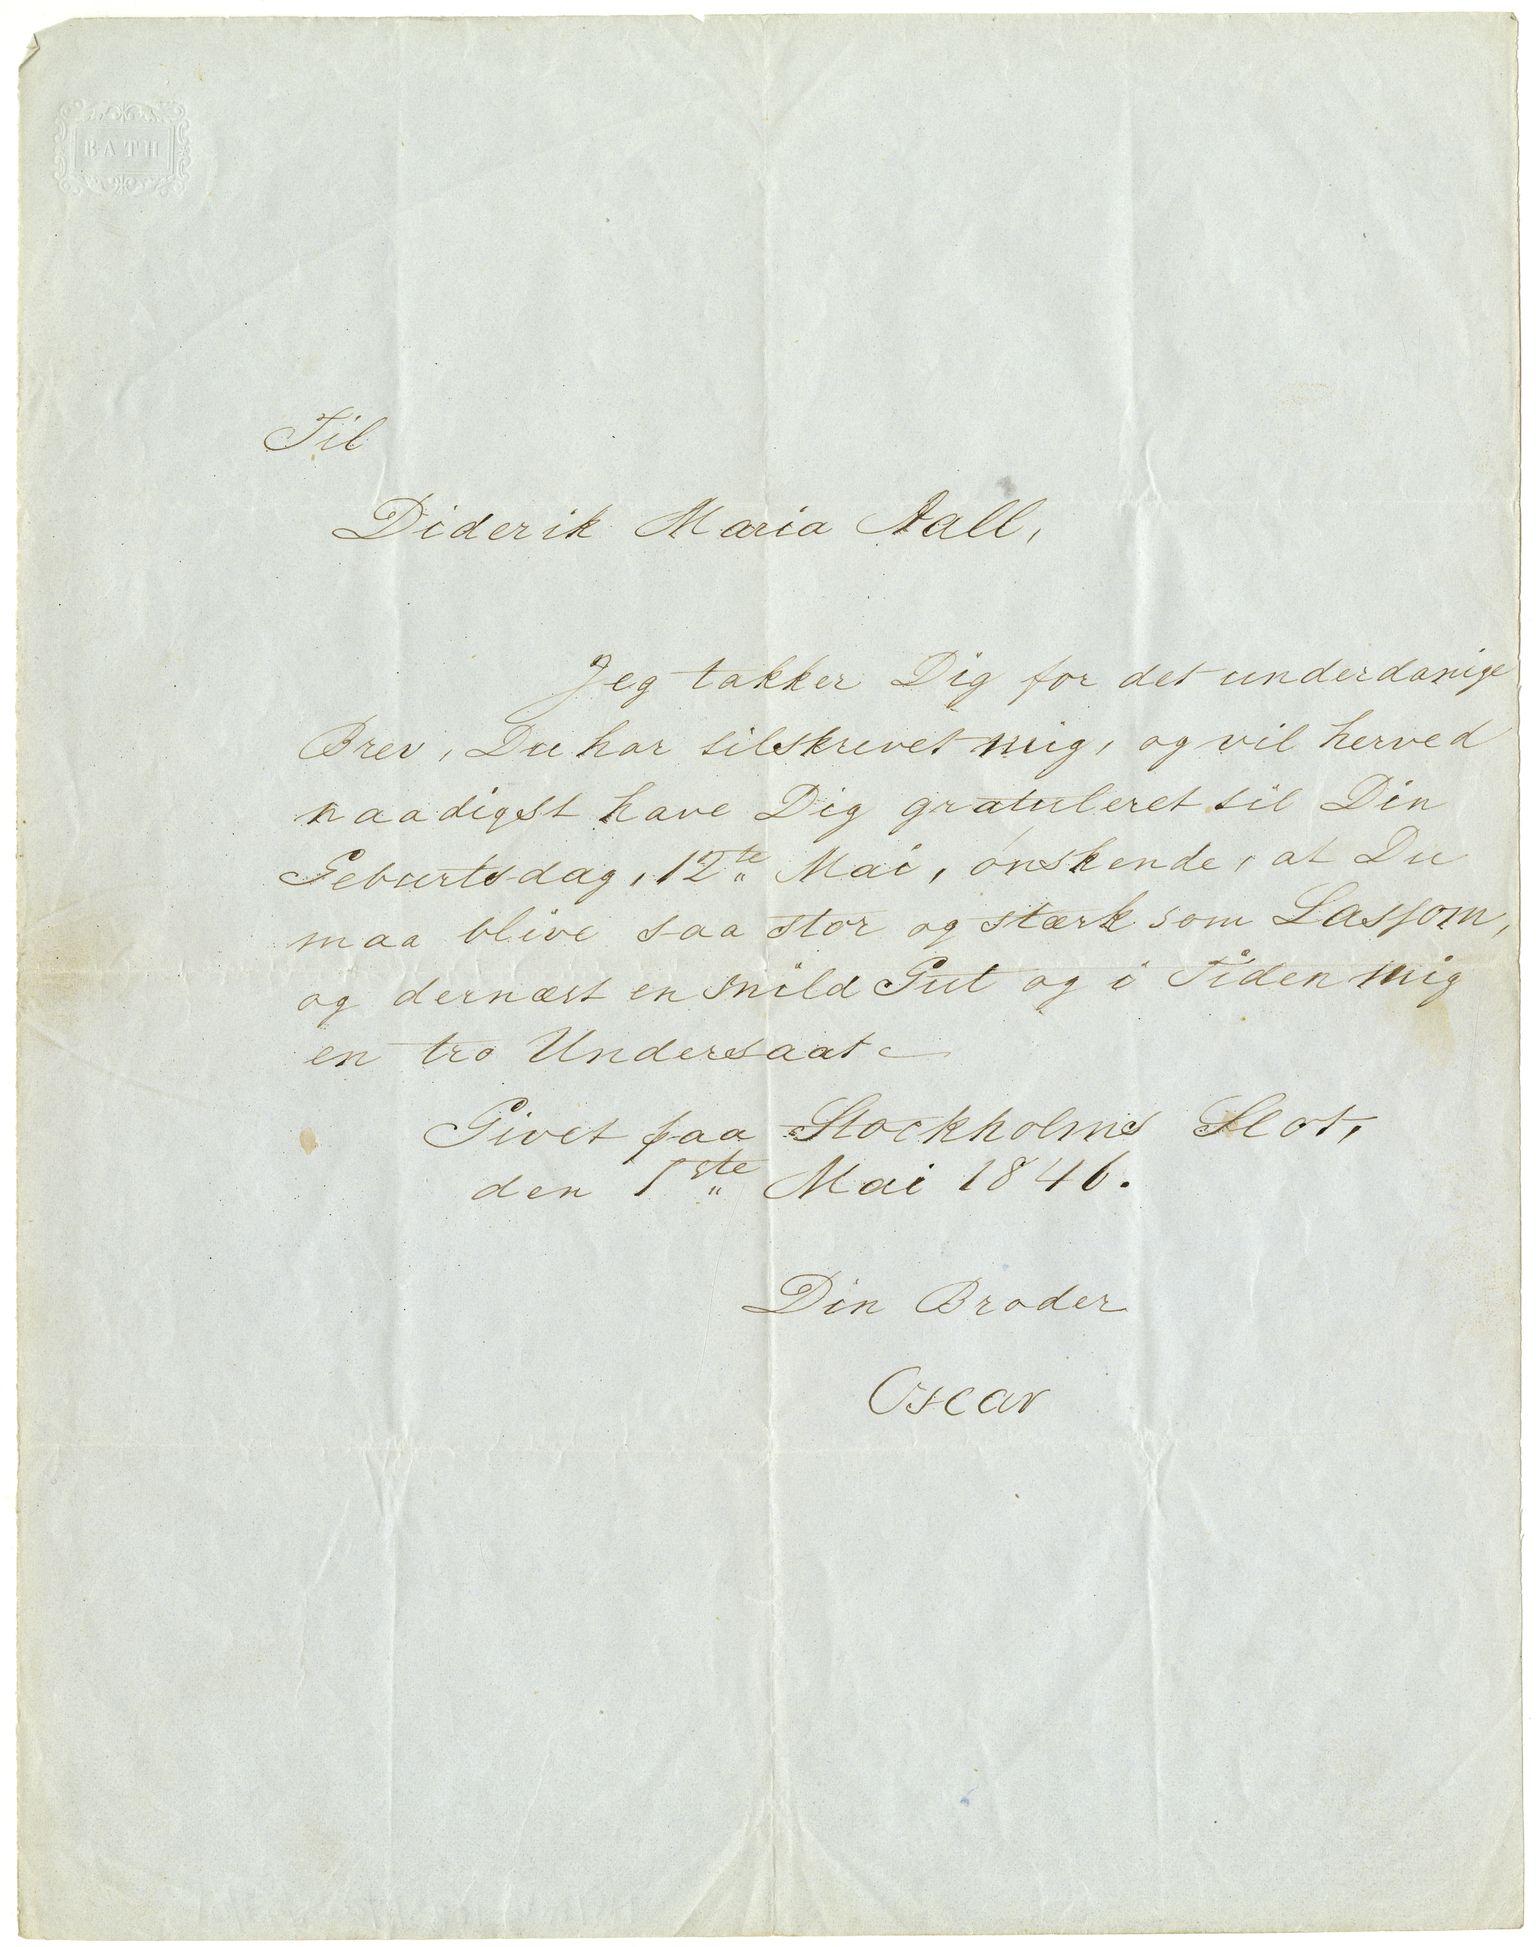 BATH
Til
Diderik Maria Aall,
Jeg takker Dig for det underdanige
Brev, Du har tilskrevet mig, og vil herved
naadigst have Dig gratuleret til Din
Geburtsdag, 12te Mai, ønskende, at Du
maa blive saa stor og stærk som Lassom,
og dernæst en snild Gut og i Tiden mig
en tro Undersaat
Givet paa Stockholms Slot,
den 1ste Mai 1846.
Din Broder
Oscar